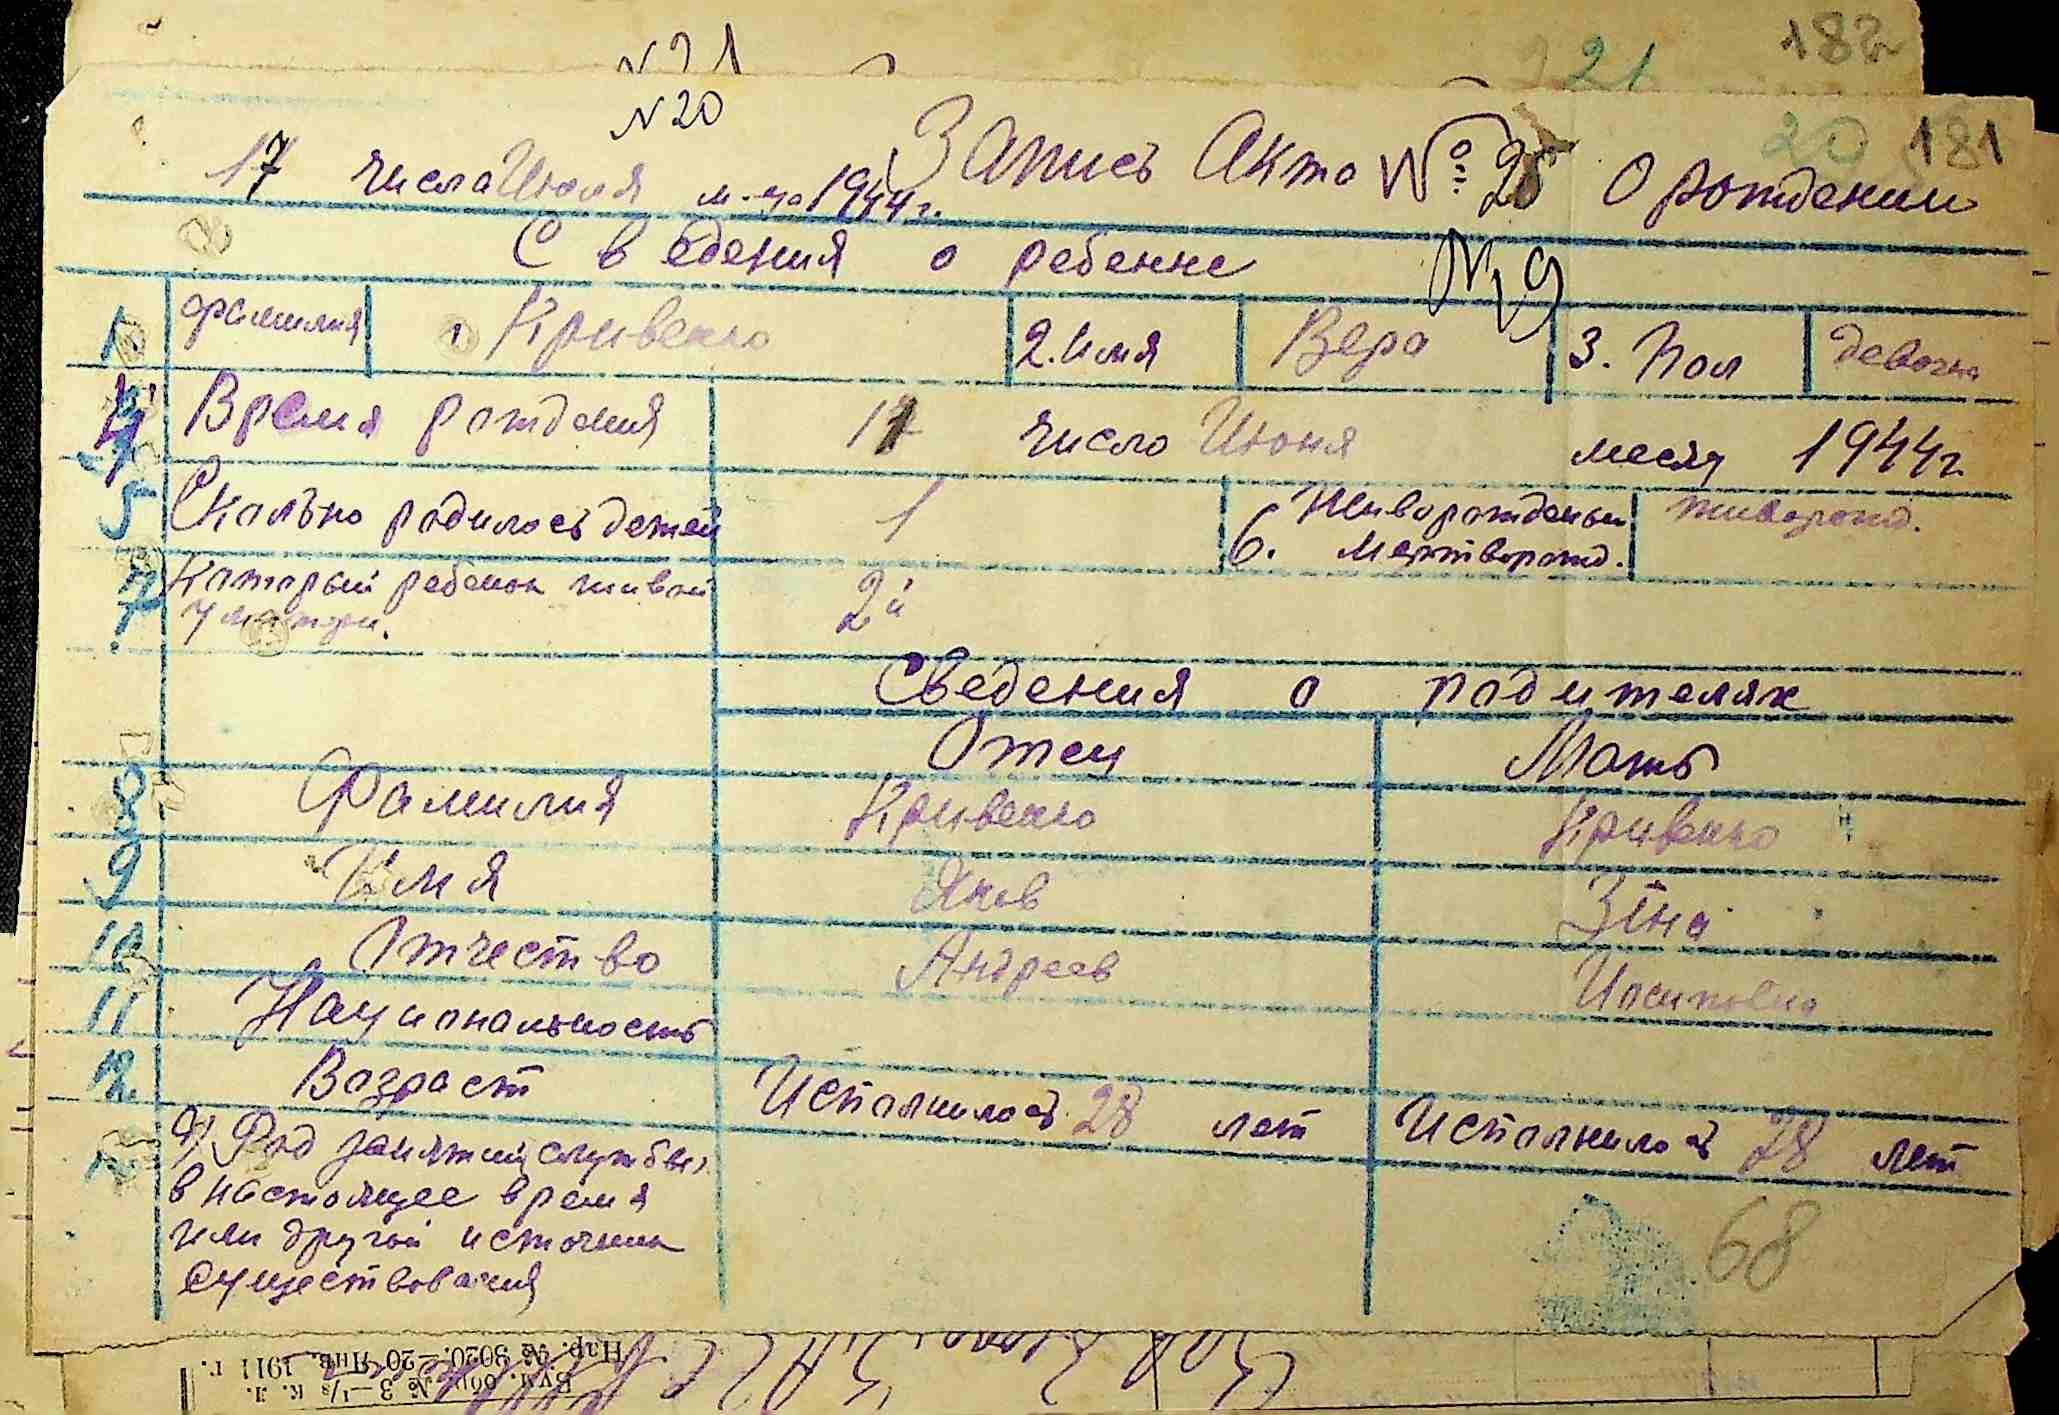 182
21
№ 21
№ 20
20
181
17 числа Июля м-ца 1944 г. Запись Акта № о рождении
Сведения о ребенке
№ 9
1 фамилия Кривенко 2. Имя Вера 3. Пол девочка
4 Время рождения число Июня месяц 1944 г.
5 Сколько родилось детей 1 6. Живорожденый Мертворожд. живорожд.
7 Который ребенок живой
у матери. 2й
Сведения о родителях
Отец Мать
8 Фамилия Кривенко Кривенко
9 Имя Яков Зіна
10 Отчество Андреев Иосиповна
11 Национальность
12 Возраст Исполнилось 28 лет Исполнилось 28 лет
Род занятий, службы,
в настоящее время
или другой источник
существования
68
Нар. № 3020.—20 Янв. 1911 г.